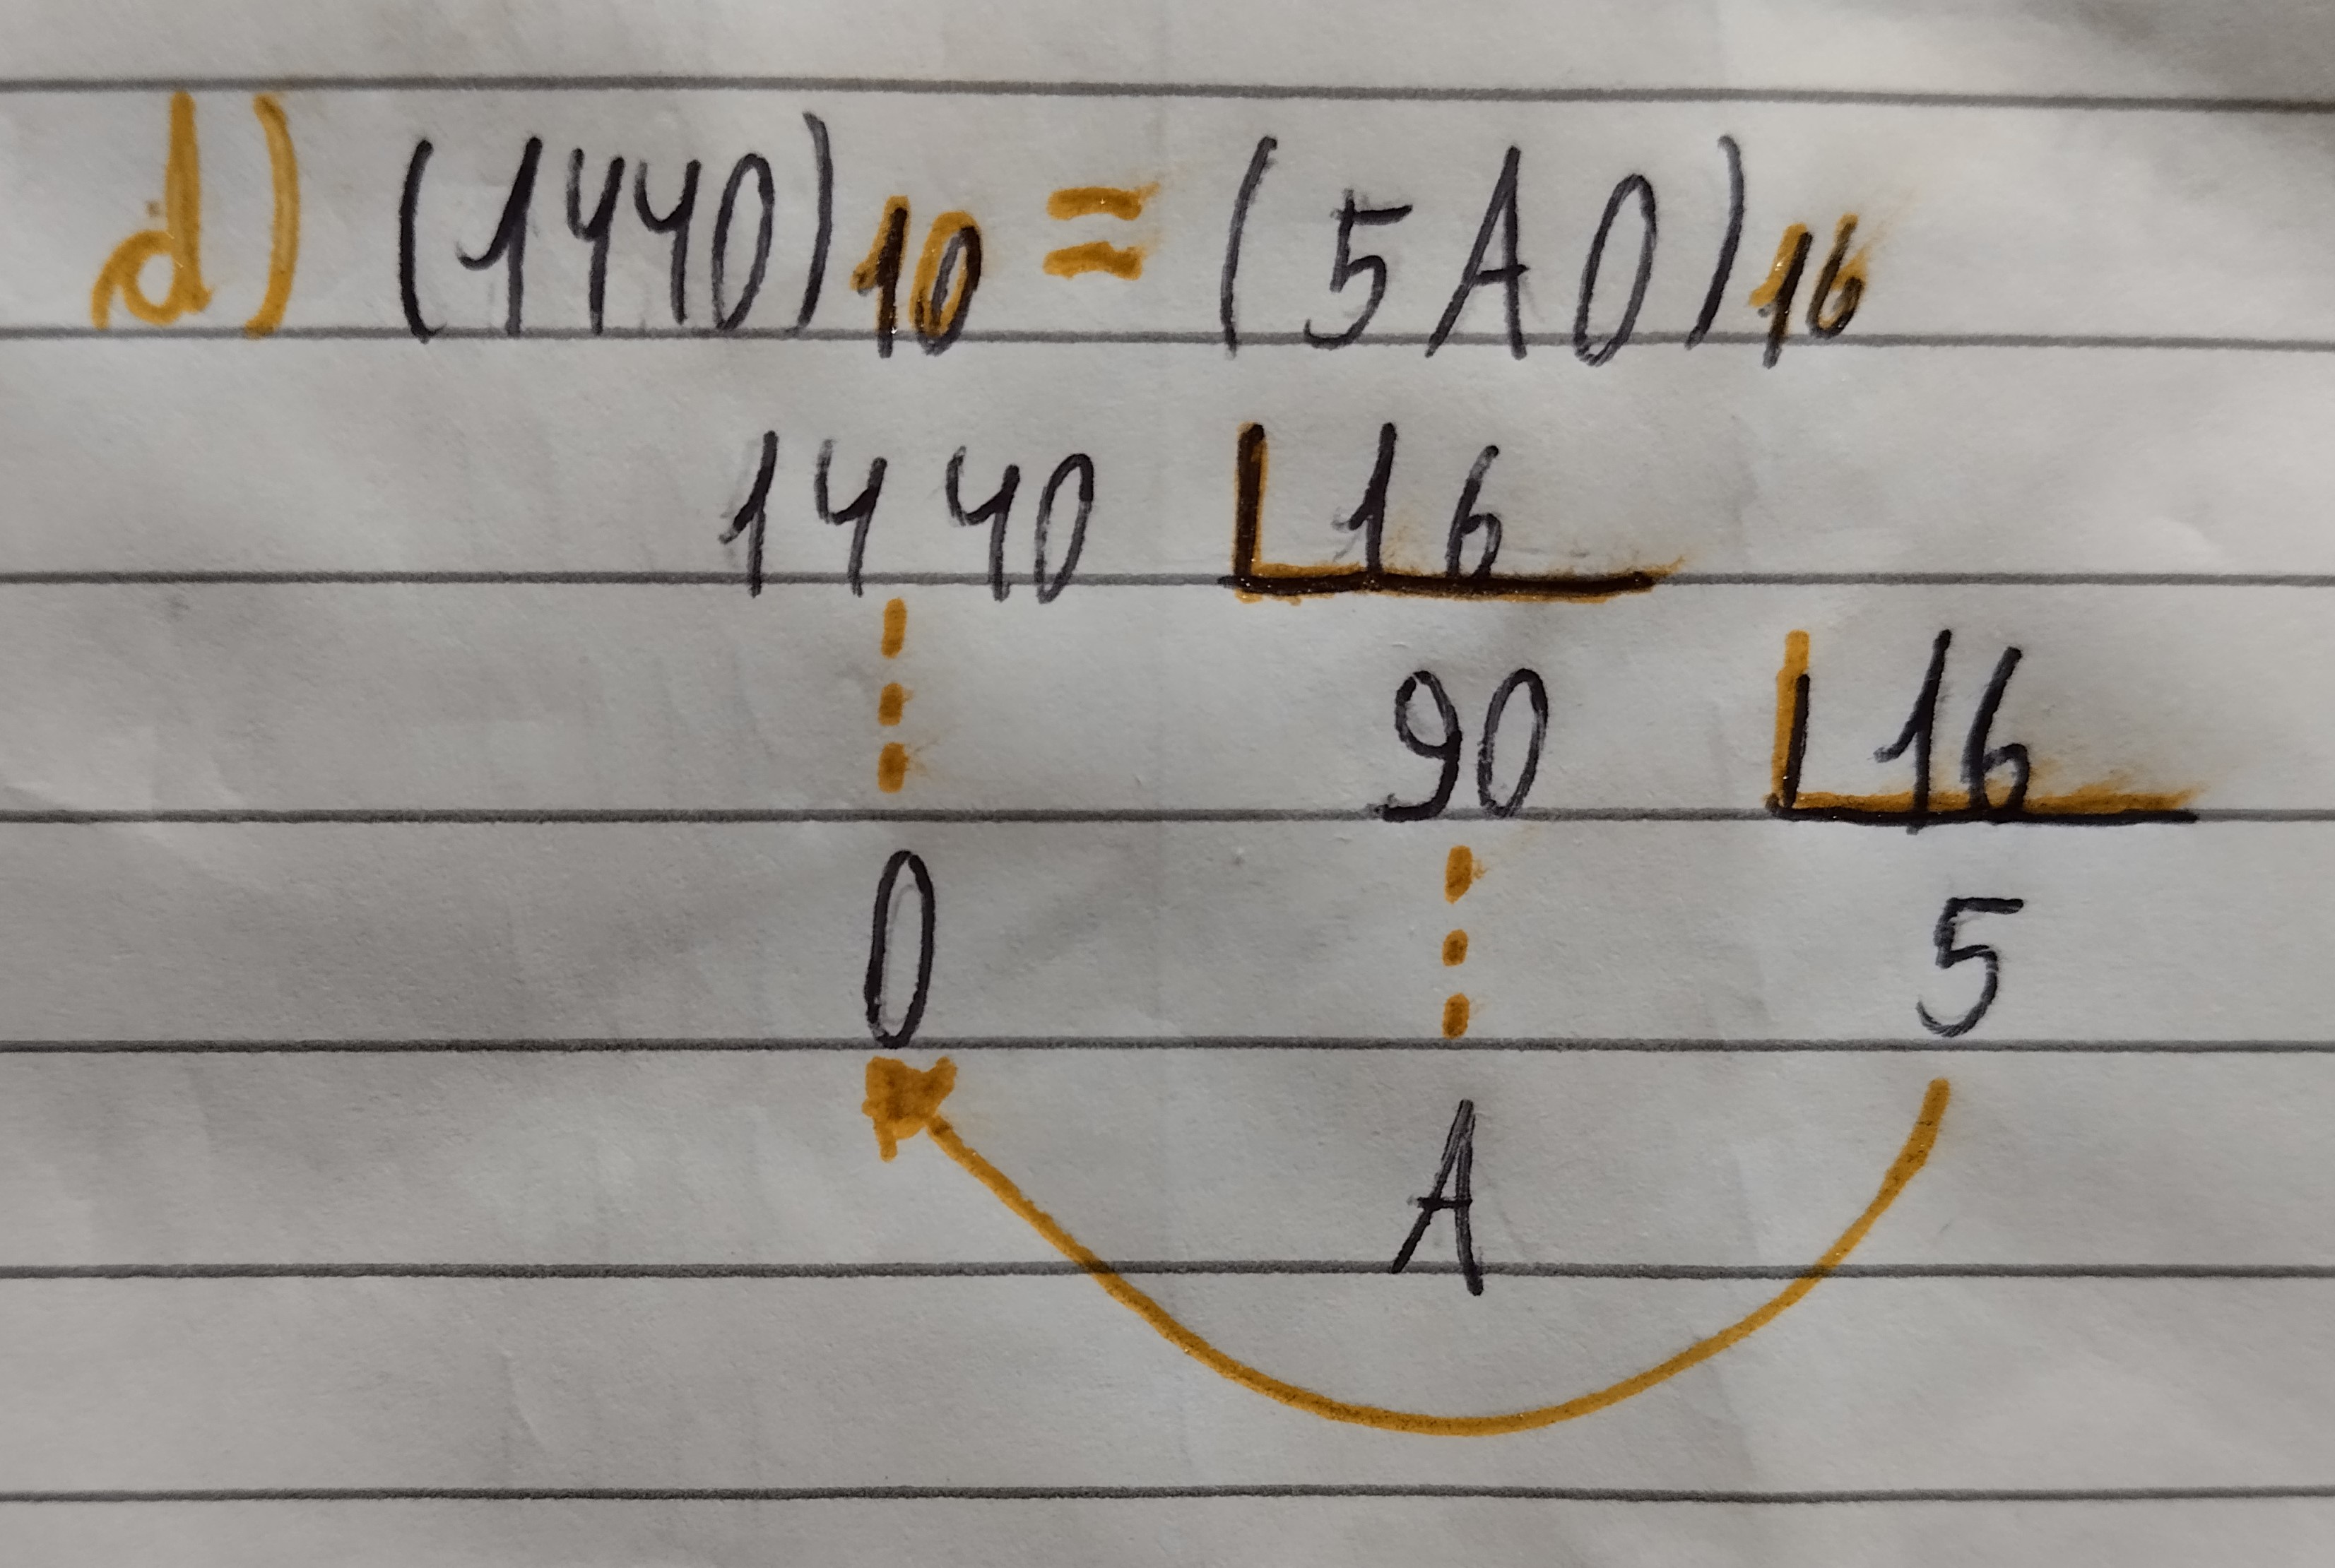 d) (1440)10 = (5A0)16
1440 16
90 16
0 5
A